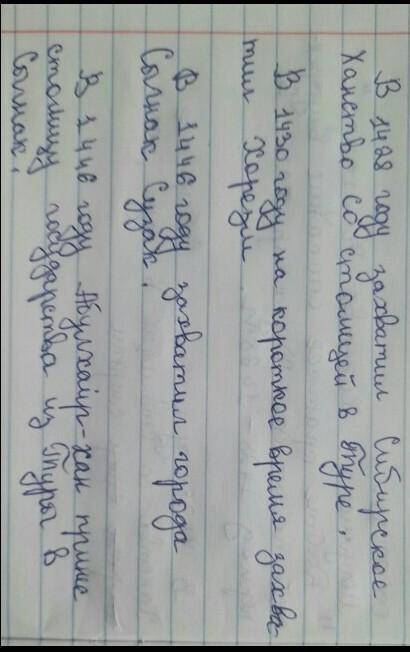 В 1428 году захватил Сибирское
Ханство со столицей в Туре.
В 1430 году на короткое время захва-
тил Хорезм
В 1446 году захватил города
Согнак Сузак.
В 1446 году Абулхаир-хан принёс
столицу государства из Туры в
Согнак.